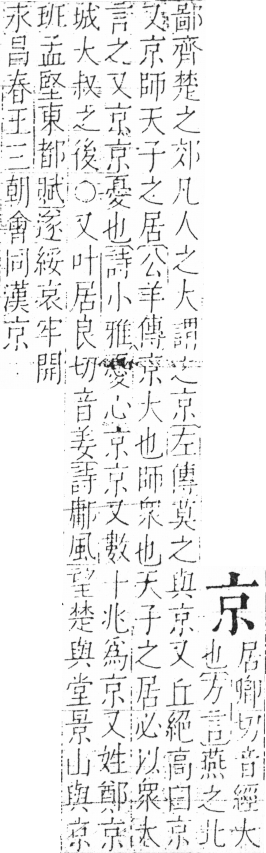 京
居卿切音經大
也方言燕之北
鄙齊楚之郊凡人之大謂之京左傳莫之與京又丘絕高曰京
又京師天子之居公羊傳京大也師衆也天子之居必以衆大
言之又京京憂也詩小雅憂心京京又數十兆爲京又姓鄭京
城大叔之後○又叶居良切音姜詩鄘風望楚與堂景山與京
班孟堅東都賦遂綏哀牢開
永昌春王三朝會同漢京